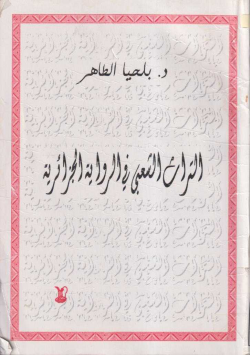 د. بلحيا الطاهر
التراث الشعبي في الرواية الجزائرية